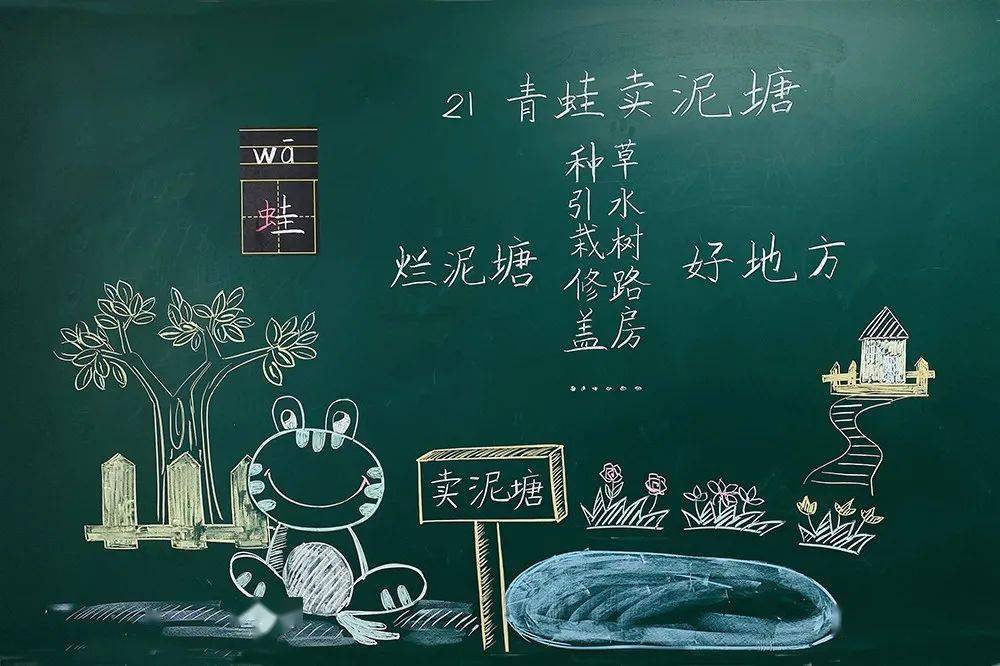 21 青蛙卖泥塘
wā
蛙
种草
引水
栽树
修路
盖房
……
烂泥塘
好地方
卖泥塘